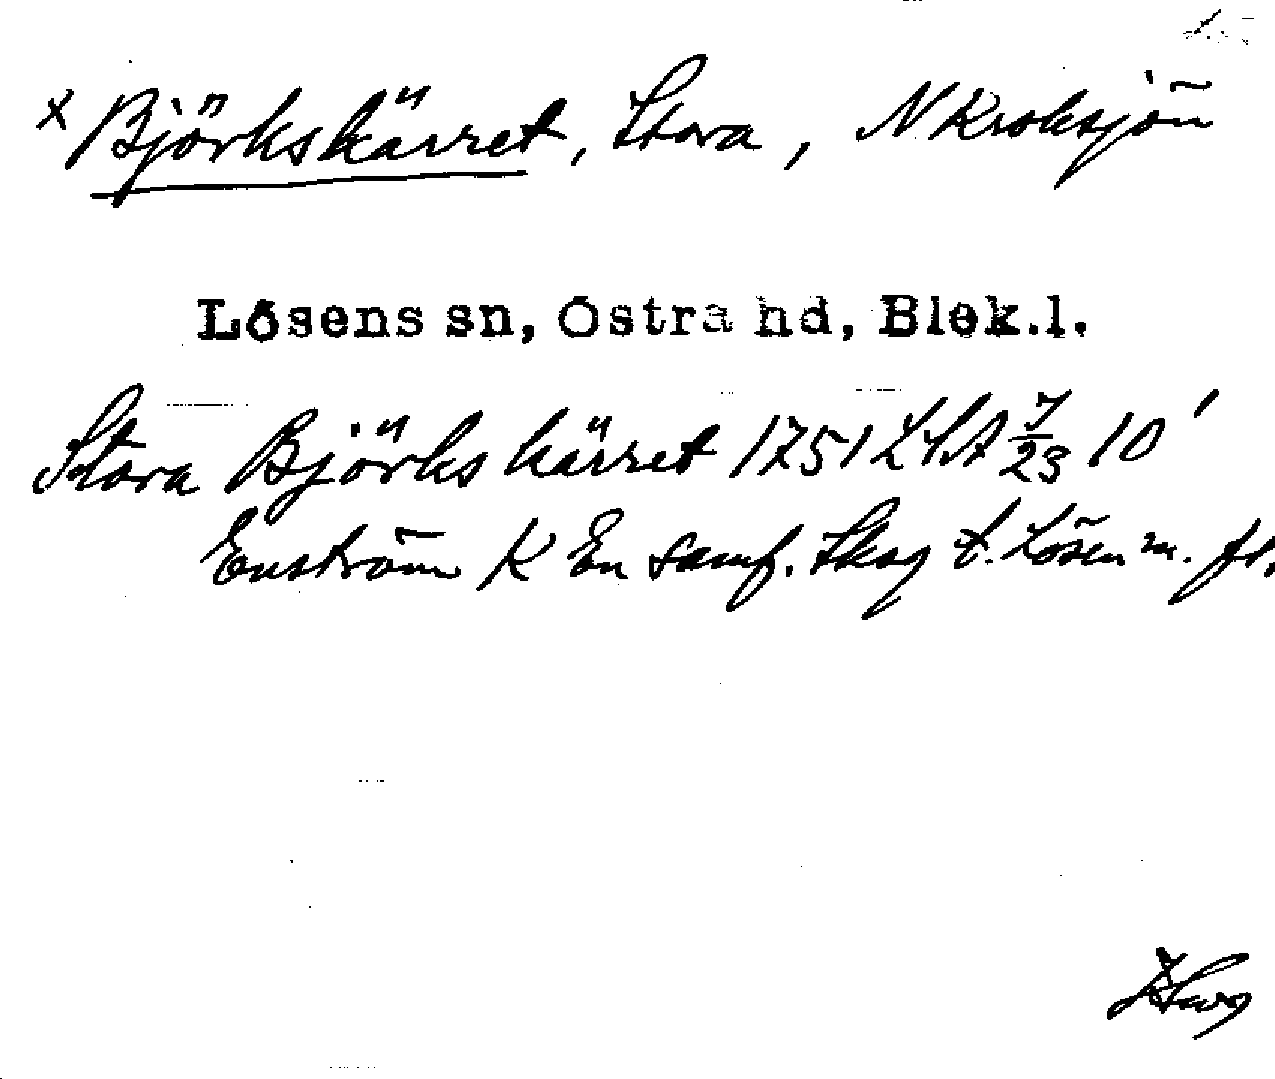 x Björkskärret, Stora, N Kroksjön
Lösens sn, Östra hd, Blek.l.
Stora Björkskärret 1751 LSA 7/23 10'
Enström K En samf. Skog t. Lösen m. fl.